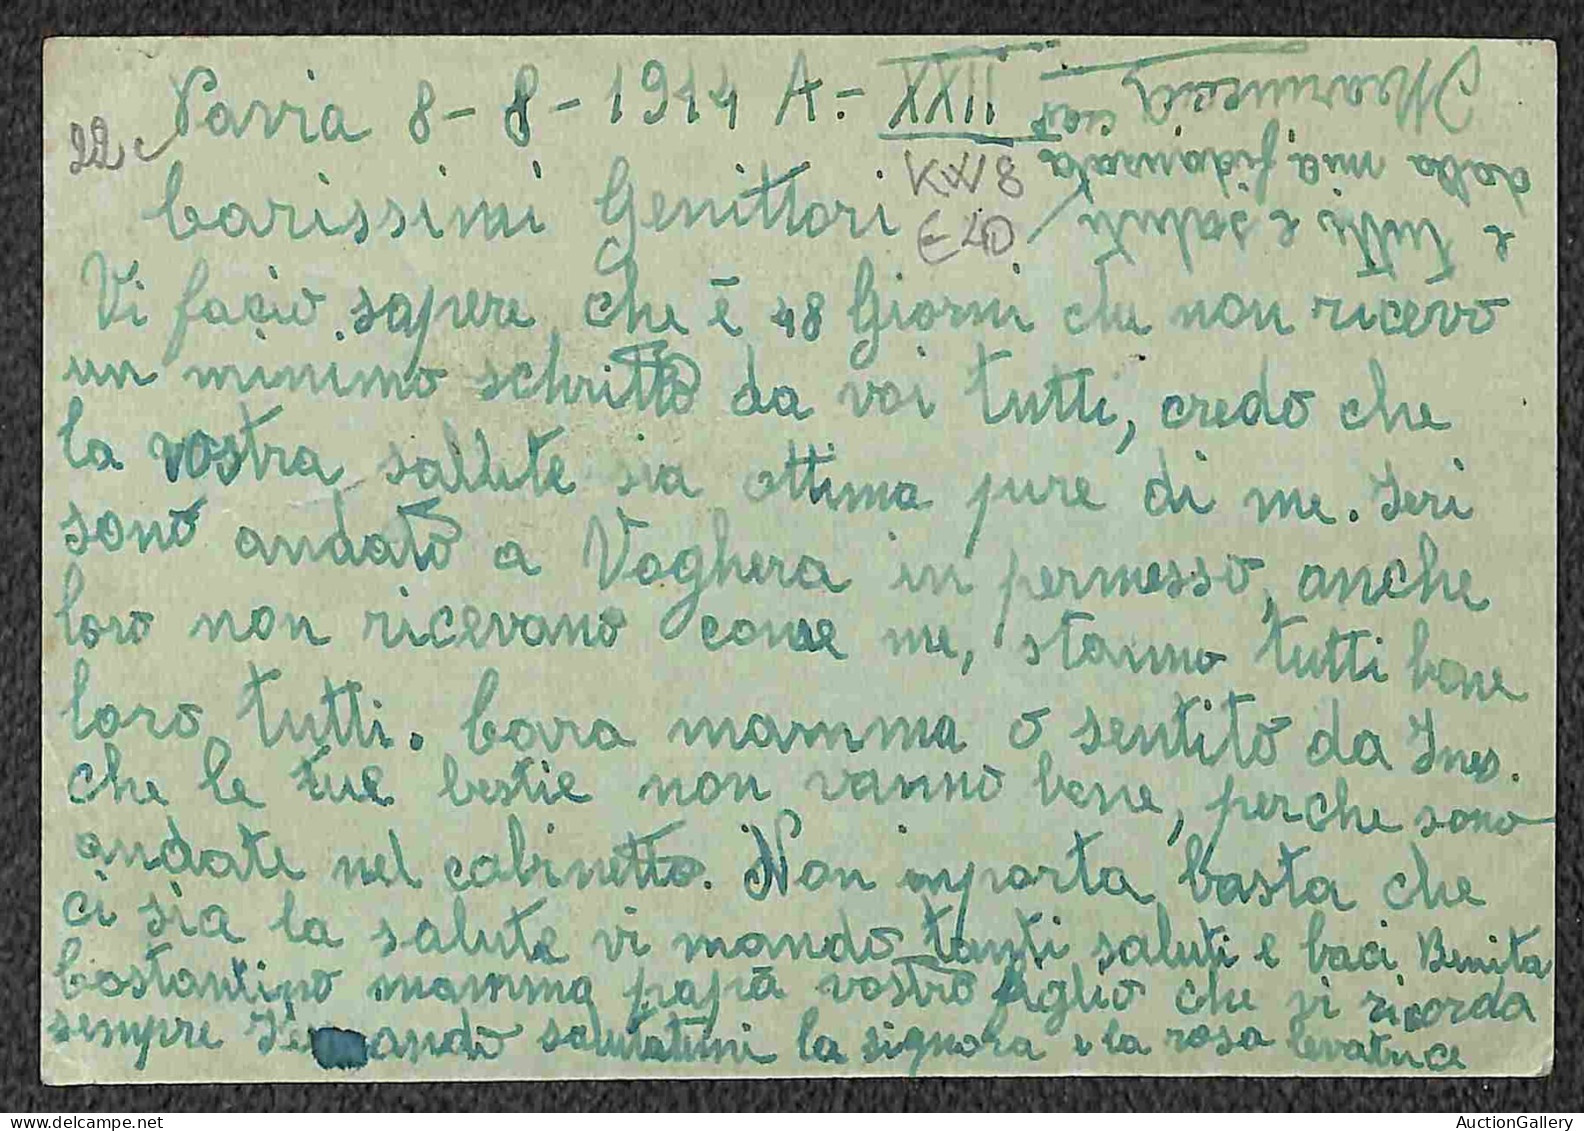 Pavia 8-8-1944 A.- XXII
22
KW8
E40
Carissimi Genittori
Vi facio sapere che è 48 Giorni che non ricevo
un minimo schritto da voi tutti, credo che
la vostra sallute sia ottima pure di me. Ieri
sono andato a Voghera in permesso, anche
loro non ricevano come me, stanno tutti bene
loro tutti. Cara mamma o sentito da Ines.
che le tue bestie non vanno bene, perche sono
andate nel cabinetto. Non importa basta che
ci sia la salute vi mando tanti saluti e baci Benita
Costantino mamma papà vostro figlio che vi ricorda
sempre andò salutatimi la signora e la rosa levatrice
e tutti e saluti
dalla mia fidanzata
AuctionGallery